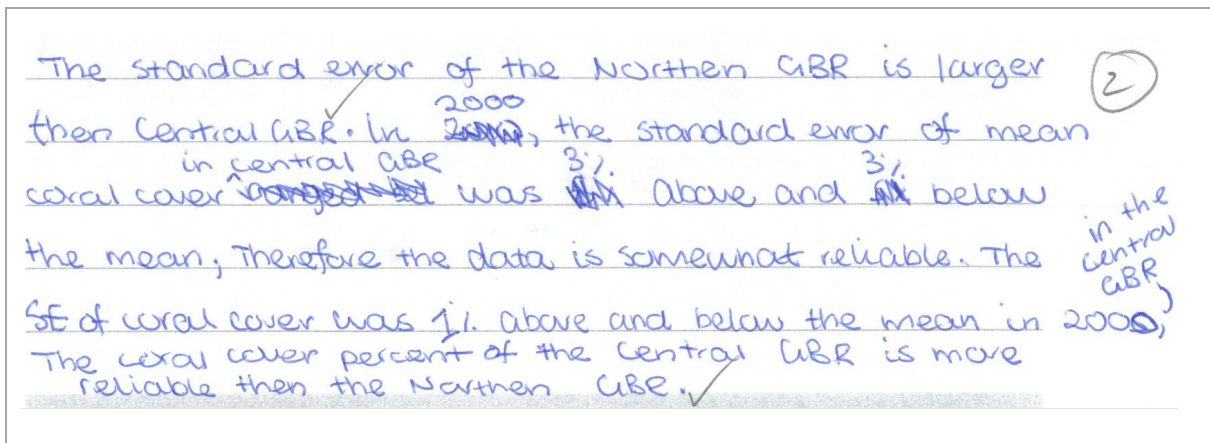 The standard error of the Northen GBR is larger
2
then Central GBR. In 2000, the standard error of mean
coral cover in central GBR was 3% above and 3% below
the mean, Therefore the data is somewhat reliable. The
SE of coral cover was 1% above and below the mean in 2000, in the central GBR,
The coral cover percent of the Central GBR is more
reliable then the Northen GBR.